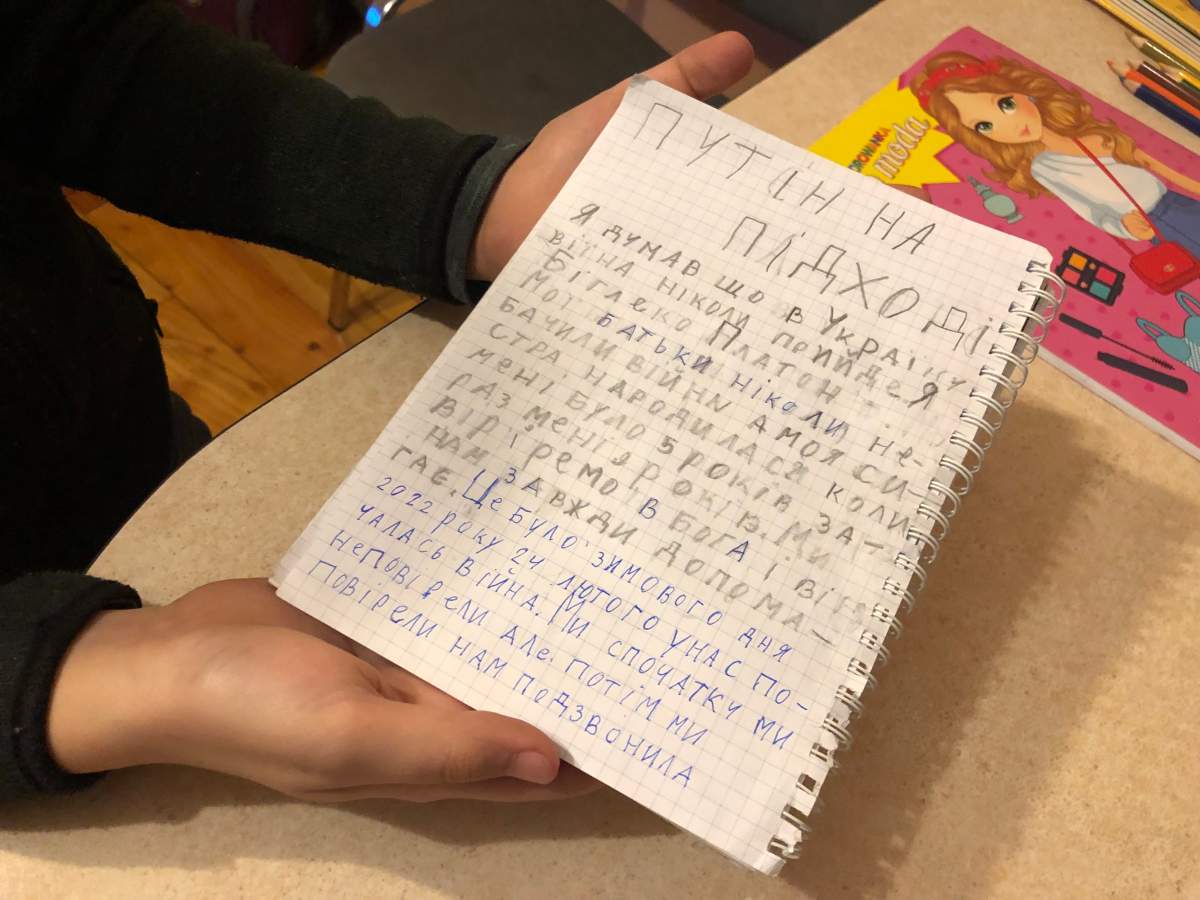 ПУТІН НА
ПІДХОДІ
Я ДУМАВ ЩО В УКРАЇНУ
ВІЙНА НІКОЛИ ПРИЙДЕ Я
БІГЛЕКО ПЛАТОН
МОЇ БАТЬКИ НІКОЛИ НЕ-
БАЧИЛИ ВІЙНУ А МОЯ СИ-
СТРА НАРОДИЛАСЯ КОЛИ
МЕНІ БУЛО 5 РОКІВ ЗА-
РАЗ МЕНІ 9 РОКІВ. МИ
ВІРІРЕМО В БОГА І ВІН
НАМ ЗАВЖДИ ДОПОМА-
ГАЄ. Це БУЛО ЗИМОВОГО ДНЯ
2022 РОКУ 24 ЛЮТОГО УНАС ПО-
ЧАЛАСЬ ВІЙНА. МИ СПОЧАТКУ МИ
НЕПОВІРЕЛИ АЛЕ. ПОТІМ МИ
ПОВІРЕЛИ НАМ ПОДЗВОНИЛА
moda